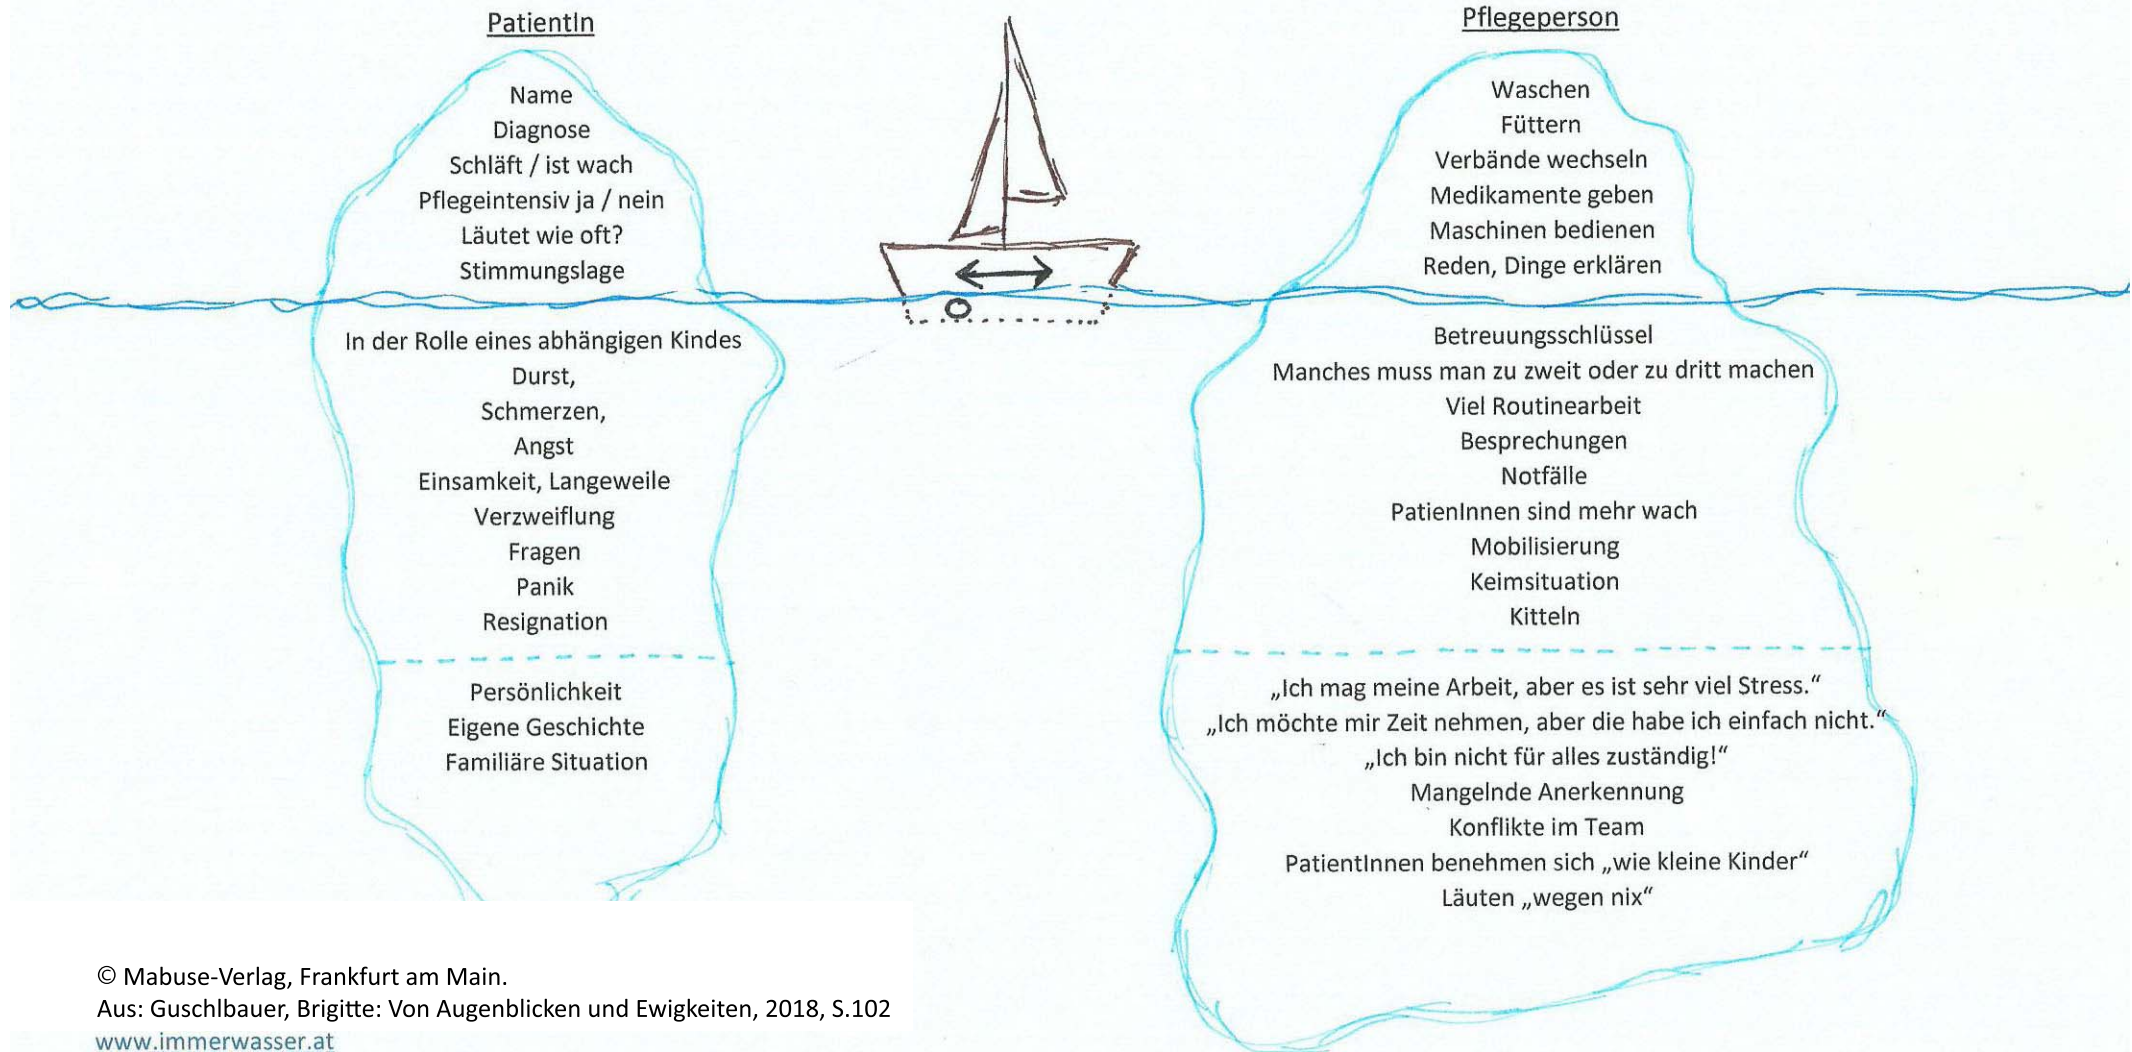 PatientIn
Name
Diagnose
Schläft / ist wach
Pflegeintensiv ja / nein
Läutet wie oft?
Stimmungslage
In der Rolle eines abhängigen Kindes
Durst,
Schmerzen,
Angst
Einsamkeit, Langeweile
Verzweiflung
Fragen
Panik
Resignation
Persönlichkeit
Eigene Geschichte
Familiäre Situation
Pflegeperson
Waschen
Füttern
Verbände wechseln
Medikamente geben
Maschinen bedienen
Reden, Dinge erklären
Betreuungsschlüssel
Manches muss man zu zweit oder zu dritt machen
Viel Routinearbeit
Besprechungen
Notfälle
PatienInnen sind mehr wach
Mobilisierung
Keimsituation
Kitteln
„Ich mag meine Arbeit, aber es ist sehr viel Stress.“
„Ich möchte mir Zeit nehmen, aber die habe ich einfach nicht.“
„Ich bin nicht für alles zuständig!“
Mangelnde Anerkennung
Konflikte im Team
PatientInnen benehmen sich „wie kleine Kinder“
Läuten „wegen nix“
© Mabuse-Verlag, Frankfurt am Main.
Aus: Guschlbauer, Brigitte: Von Augenblicken und Ewigkeiten, 2018, S.102
www.immerwasser.at